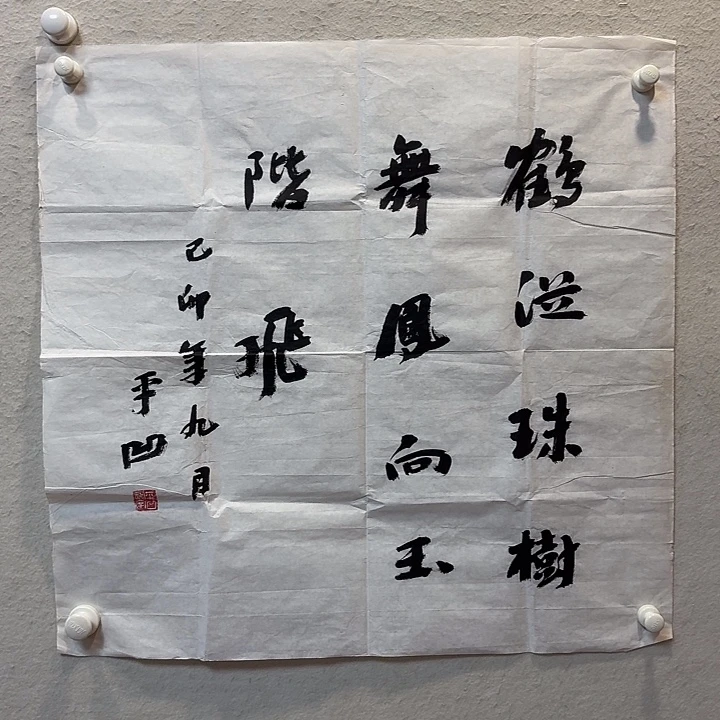 鶴從珠樹
舞鳳向玉
階飛
己卯年九月
平凹